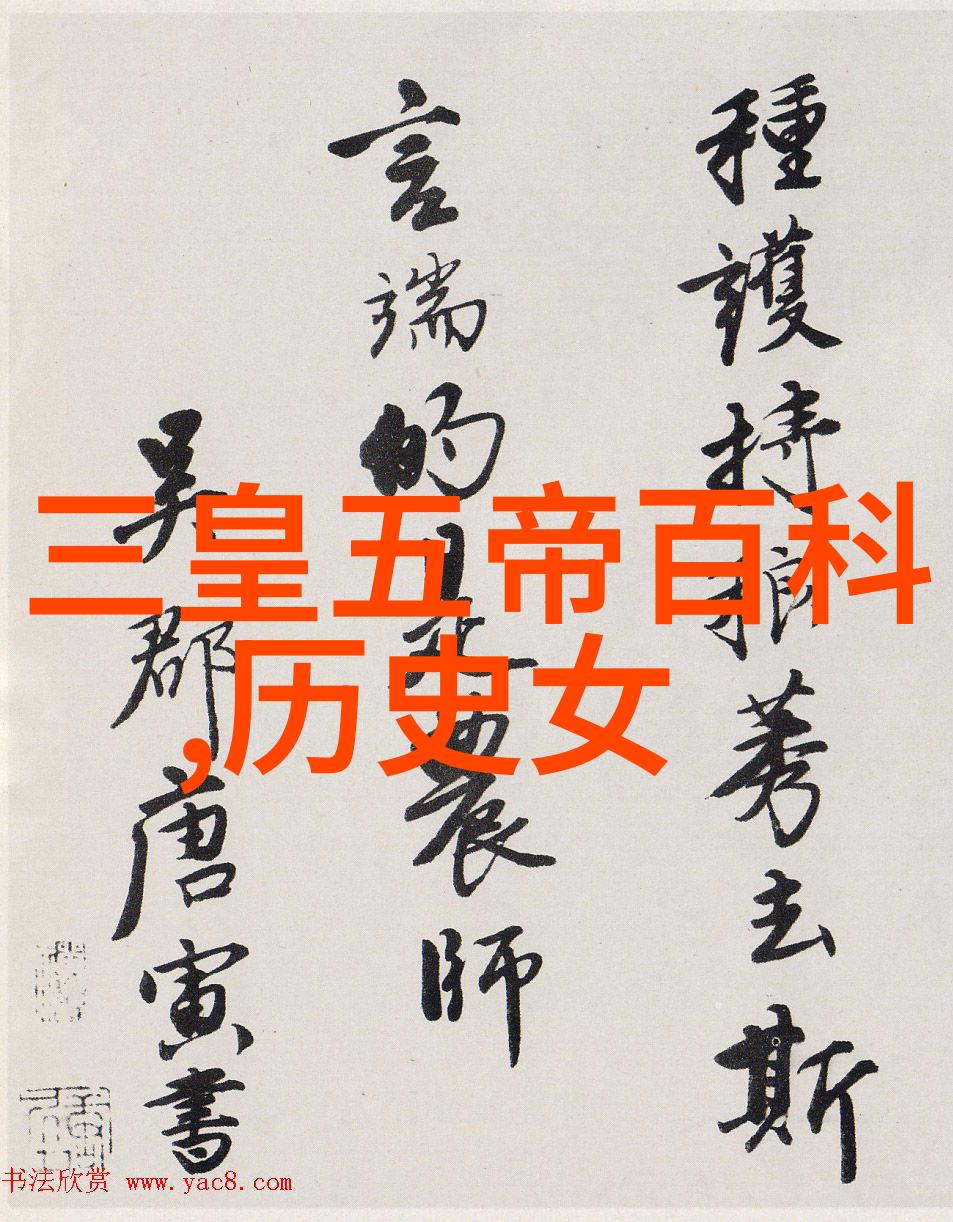 種護持狼莠去斯
言端的農師
吳郡唐寅書
三皇五帝百科
,历史女
书法欣赏 www.yac8.com